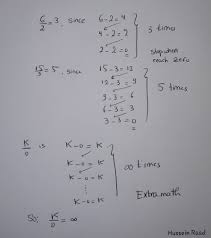 6/2 = 3, since 6-2=4
4-2=2
2-2=0
3 times
stop when reach zero
15/3 = 5, since 15-3=12
12-3=9
9-3=6
6-3=3
3-3=0
5 times
K/0 is K-0=K
K-0=K
K-0=K
K-0=K
∞ times
Extramath
So; K/0 = ∞
Hussein Raad